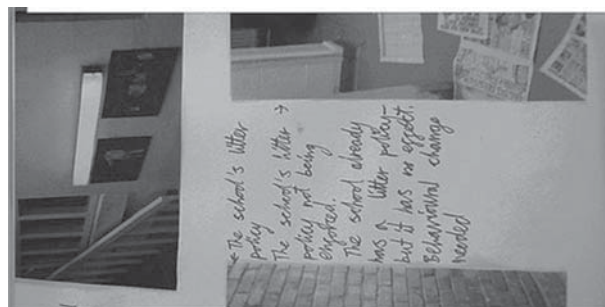 ← The school's litter
policy
The school's litter →
policy not being
enforced.
The school already
has a litter policy-
but it has no effect.
Behavioural change
needed